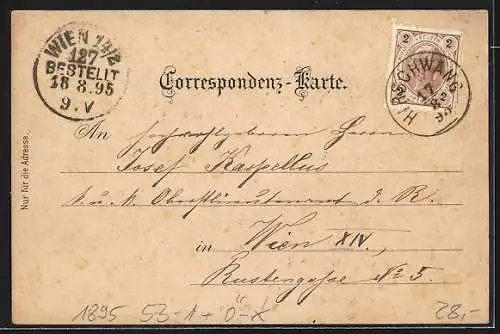 WIEN 14/2
127
BESTELLT
18 8.95
9.V
2 2
HIRSCHWANG
17
8
95
Correspondenz-Karte.
Nur für die Adresse.
An hochwohlgeboren Herrn
Josef Kaspellus
k. u. k. Oberstlieutenant d. R.
in Wien XIV.,
Rustengasse No 5.
1895 53-1 + Ö-X
28,-